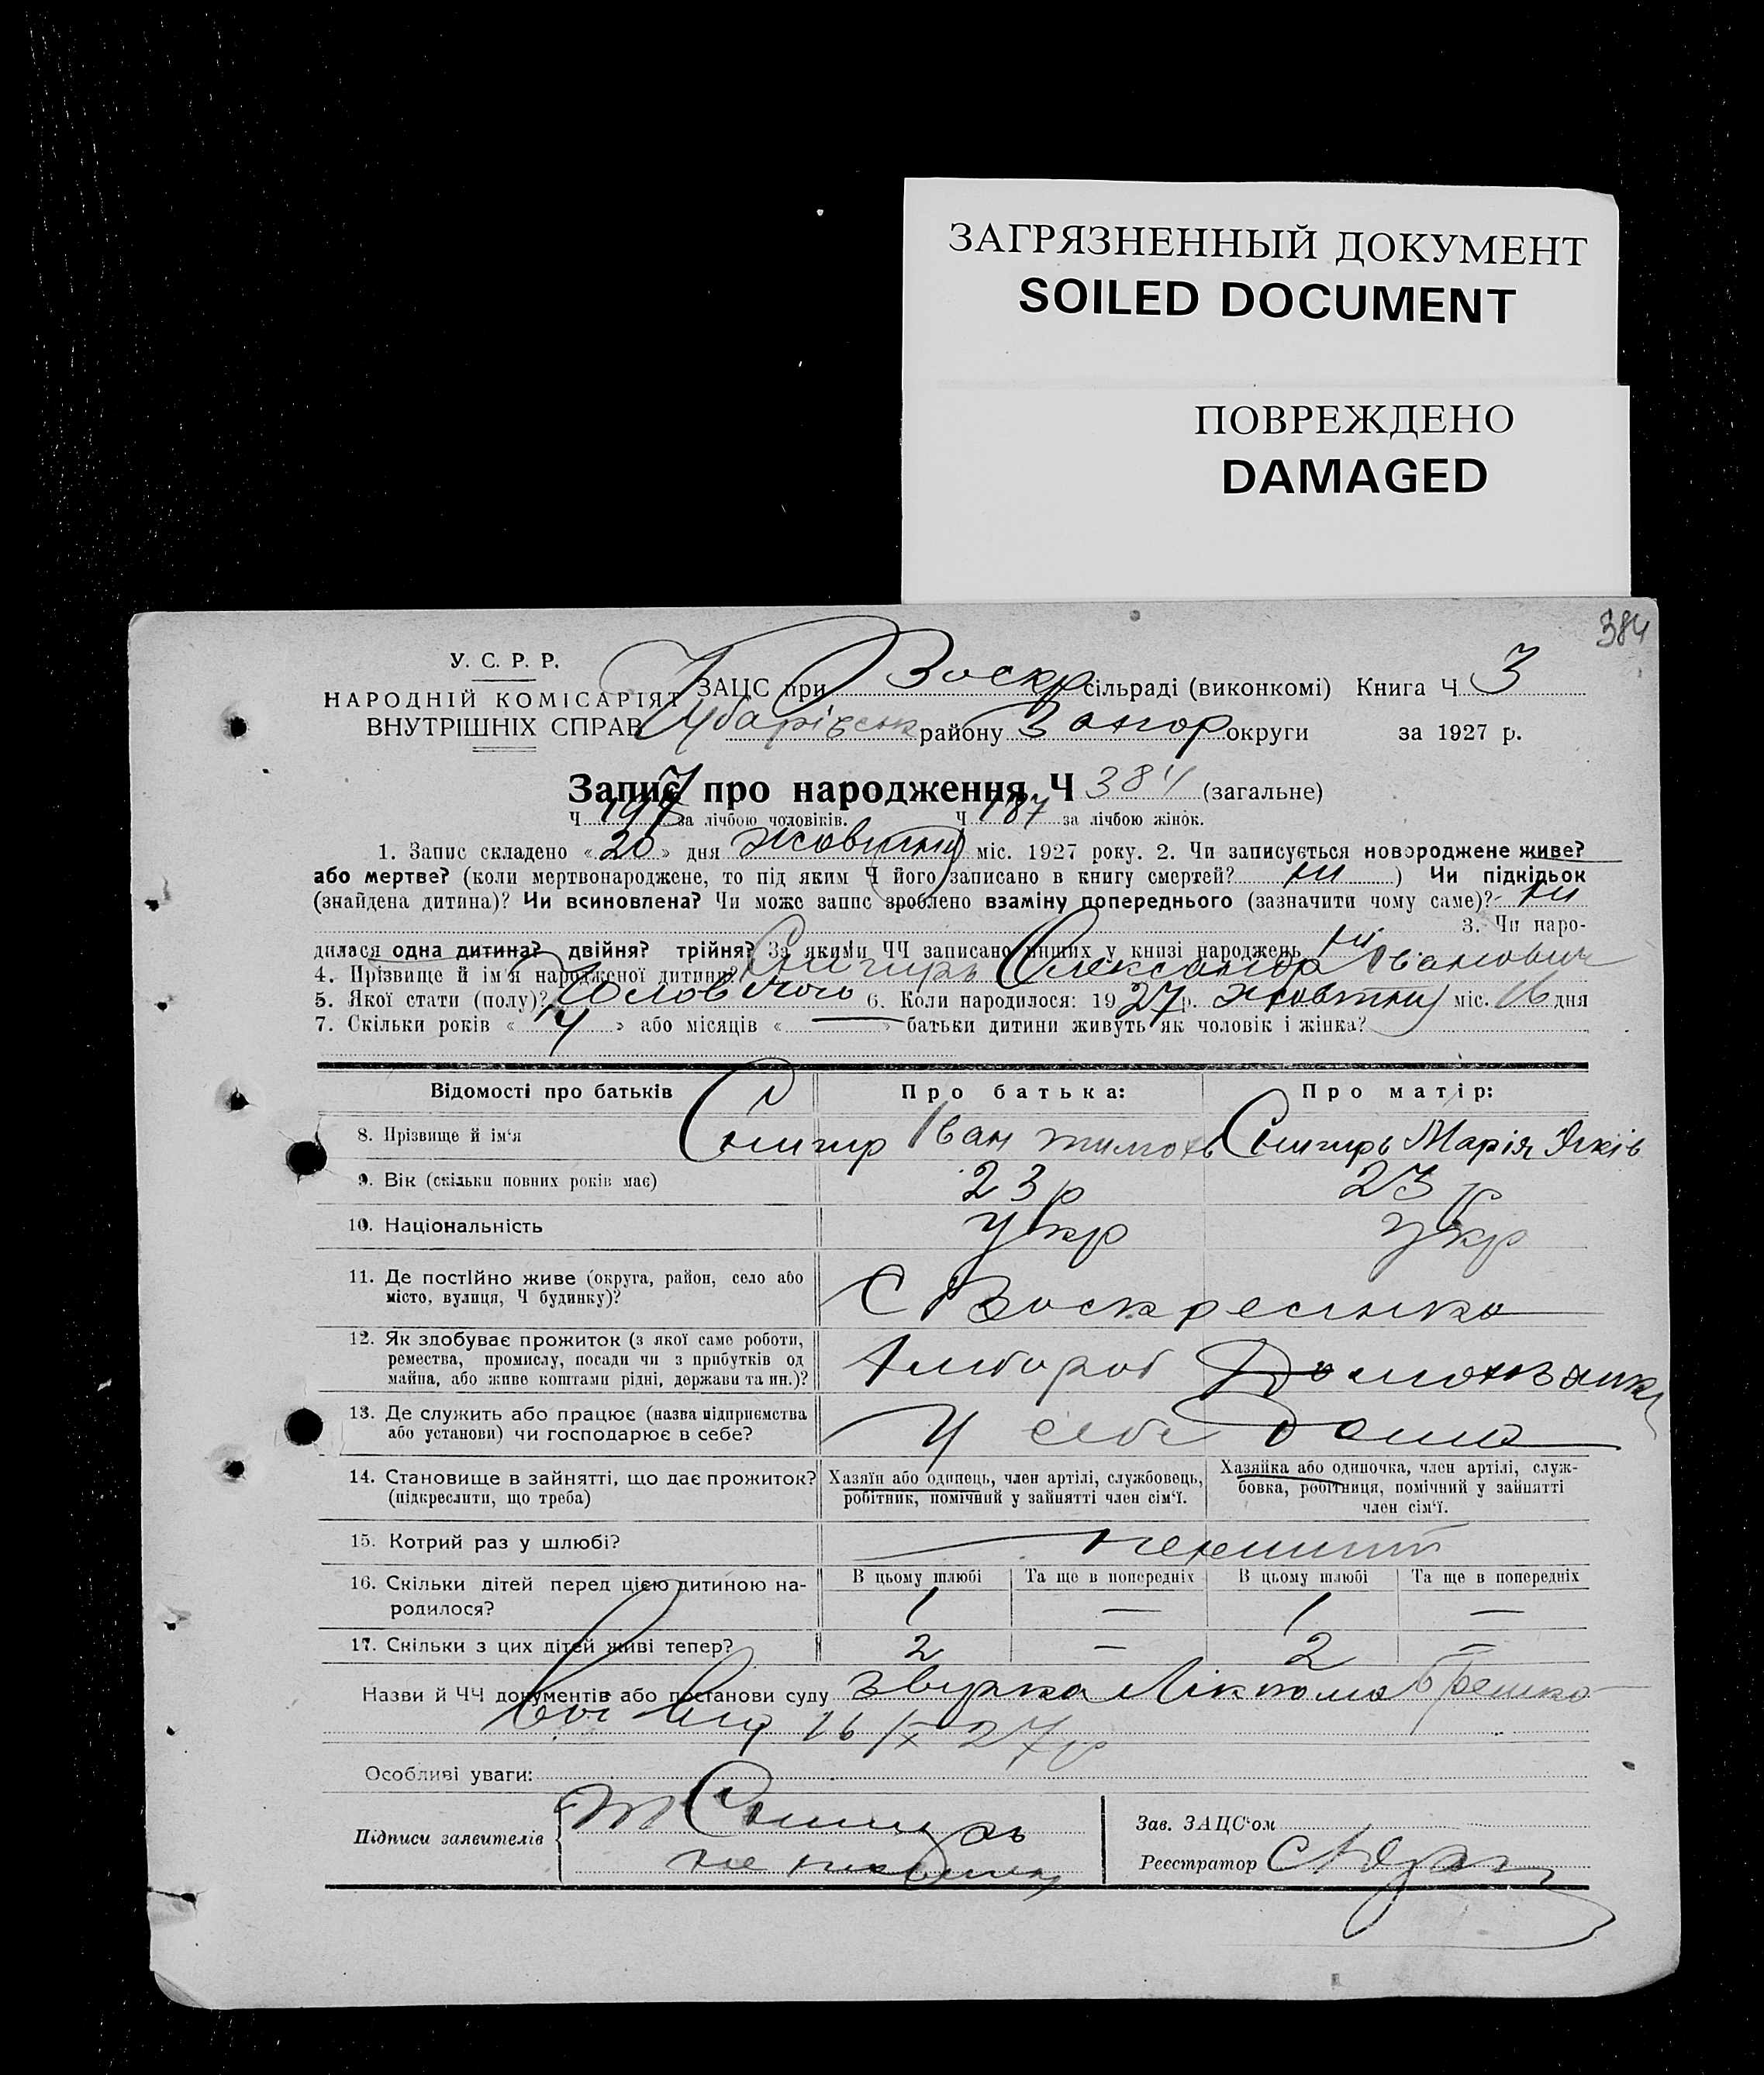 ЗАГРЯЗНЕННЫЙ ДОКУМЕНТ
SOILED DOCUMENT
ПОВРЕЖДЕНО
DAMAGED
384
У. С. Р. Р.
НАРОДНІЙ КОМІСАРІЯТ
ВНУТРІШНІХ СПРАВ
ЗАЦС при Воскр сільраді (виконкомі) Книга Ч 3
району округи за 1927 р.
Запис про народження Ч 384 (загальне)
Ч 197 за лічбою чоловіків. Ч 187 за лічбою жінок.
1. Запис складено «20» дня жовтня міс. 1927 року. 2. Чи записується новороджене живе?
або мертве? (коли мертвонароджене, то під яким Ч його записано в книгу смертей? ні ) Чи підкідьок
(знайдена дитина)? Чи всиновлена? Чи може запис зроблено взаміну попереднього (зазначити чому саме)? ні
3. Чи наро-
дилася одна дитина? двійня? трійня? За якими ЧЧ записано инших у книзі народжень ні
4. Прізвище й ім'я народженої дитини? Снигирь Олександр Іванович
5. Якої стати (полу)? Чоловічого 6. Коли народилося: 1927 р. жовтня міс. 16 дня
7. Скільки років « 4 » або місяців « — » батьки дитини живуть як чоловік і жінка?
Відомості про батьків Про батька: Про матір:
8. Прізвище й ім'я Снигир Іван Тимох Снигирь Марія Яків
9. Вік (скільки повних років має) 23 р 23 р
10. Національність Укр Укр
11. Де постійно живе (округа, район, село або
місто, вулиця, Ч будинку)? С Воскресенка
12. Як здобуває прожиток (з якої саме роботи,
ремества, промислу, посади чи з прибутків од
майна, або живе коштами рідні, держави та ин.)? Хлібороб
13. Де служить або працює (назва підприємства
або установи) чи господарює в себе? У себе дома
14. Становище в зайнятті, що дає прожиток?
(підкреслити, що треба)
Хазяїн або одинець, член артілі, службовець,
робітник, помічний у зайнятті член сім'ї.
Хазяйка або одиночка, член артілі, служ-
бовка, робітниця, помічний у зайнятті
член сім'ї.
15. Котрий раз у шлюбі? перший
16. Скільки дітей перед цією дитиною на-
родилося?
В цьому шлюбі Та ще в попередніх В цьому шлюбі Та ще в попередніх
1 — 1 —
17. Скільки з цих дітей живі тепер? 2 — 2 —
Назви й ЧЧ документів або постанови суду
16/X 27 р
Особливі уваги:
Підписи заявителів Снигирь
Зав. ЗАЦС'ом
Реєстратор